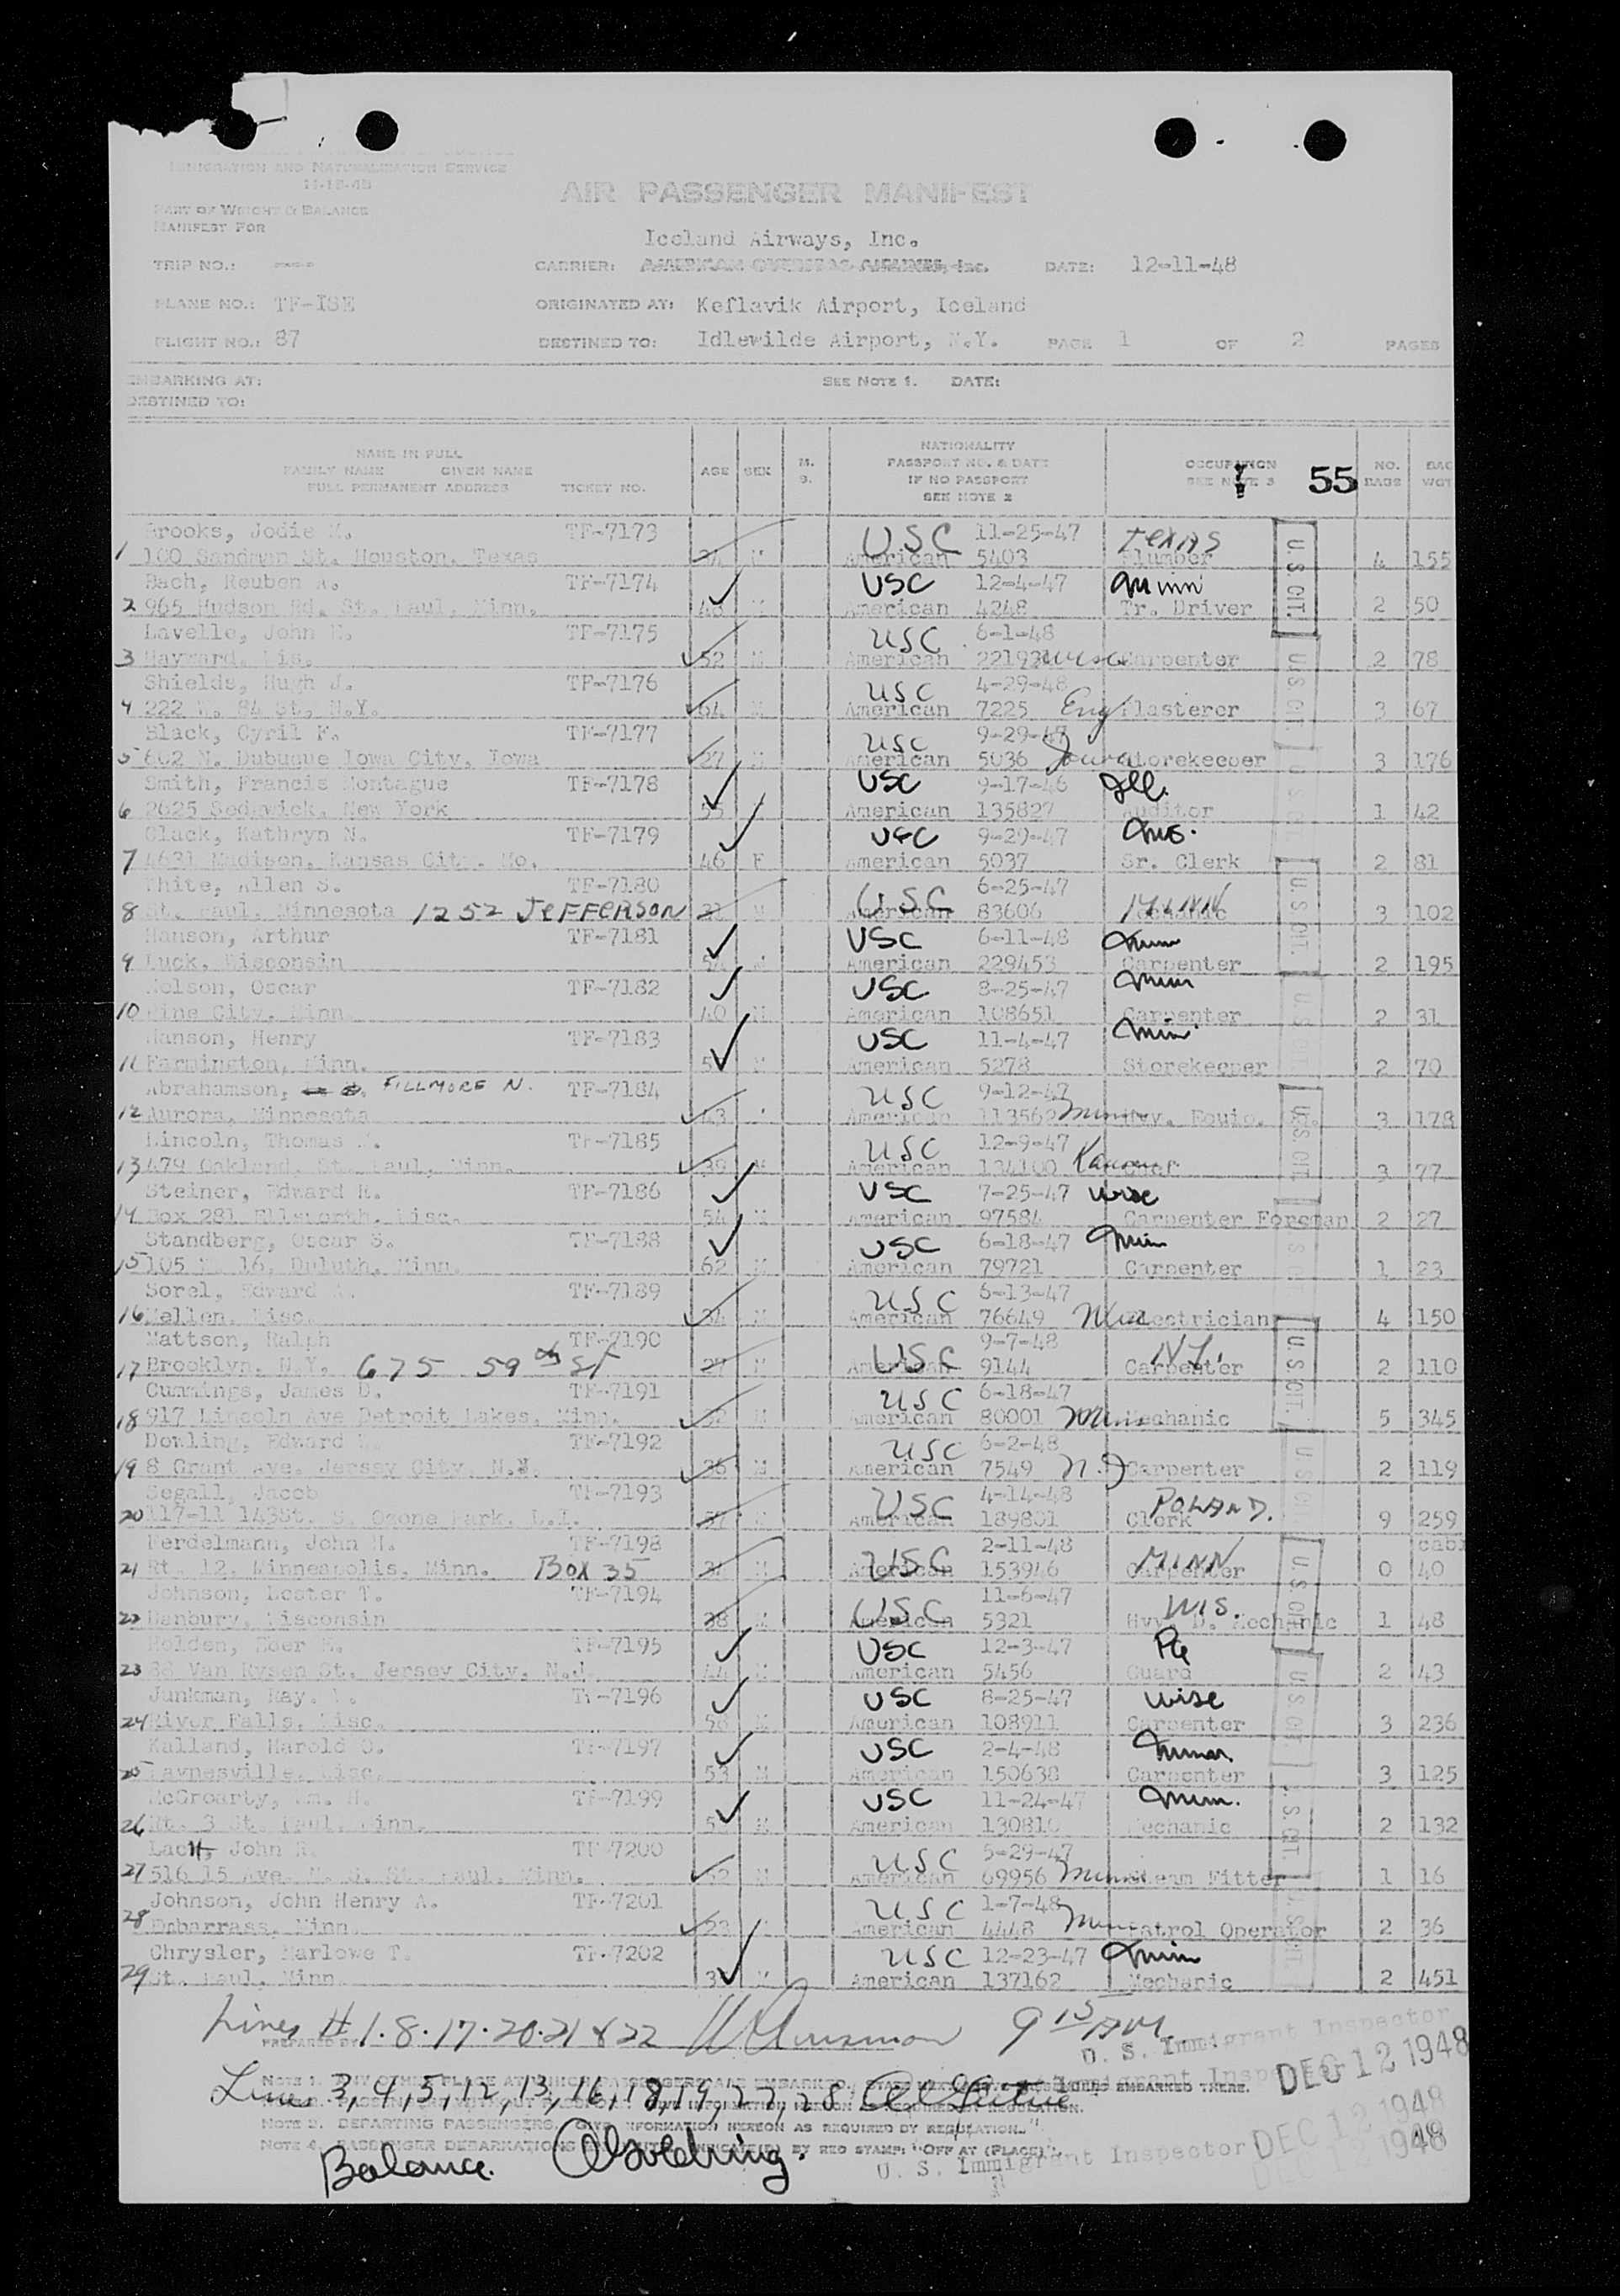 IMMIGRATION AND NATURALIZATION SERVICE
11-18-48
AIR PASSENGER MANIFEST
PART OF WEIGHT & BALANCE
MANIFEST FOR
Iceland Airways, Inc.
TRIP NO.: ---- CARRIER: AMERICAN OVERSEAS AIRLINES, Inc. DATE: 12-11-48
PLANE NO.: TF-ISE ORIGINATED AT: Keflavik Airport, Iceland
FLIGHT NO.: 87 DESTINED TO: Idlewilde Airport, N.Y. PAGE 1 OF 2 PAGES
EMBARKING AT: SEE NOTE 1. DATE:
DESTINED TO:
NAME IN FULL
FAMILY NAME GIVEN NAME
FULL PERMANENT ADDRESS TICKET NO. AGE SEX M. S. NATIONALITY PASSPORT NO. & DATE IF NO PASSPORT SEE NOTE 2 OCCUPATION SEE NOTE 3 55 NO. BAGS BAG WGT
Brooks, Jodie M. TF-7173 USC 11-25-47 TEXAS
1 100 Sandman St. Houston, Texas M American 5403 Plumber 4 155
Bach, Reuben A. TF-7174 USC 12-4-47 Minn
2 965 Hudson Rd. St. Paul, Minn. American 4248 Tr. Driver 2 50
Lavelle, John TF-7175 USC 6-1-48
3 Hayward, Wis. 52 M American Carpenter 2 78
Shields, Hugh J. TF-7176 USC 4-29-48
4 222 W. 84 St. N.Y. 64 M American 7225 Eng Plasterer 3 67
Black, Cyril F. TF-7177 USC 9-29-47
5 602 N. Dubuque Iowa City, Iowa 27 M American 5036 Iowa Storekeeper 3 176
Smith, Francis Montague TF-7178 USC 9-17-46 Ill.
6 2025 Sedgwick, New York 55 American 135827 Auditor 1 42
Clack, Kathryn N. TF-7179 USC 9-29-47 Mo.
7 4631 Madison, Kansas City, Mo. 46 F American 5037 Sr. Clerk 2 81
White, Allen S. TF-7180 USC 6-25-47 MINN
8 St. Paul, Minnesota 1252 JEFFERSON M American 83606 3 102
Hanson, Arthur TF-7181 USC 6-11-48 Minn
9 Luck, Wisconsin American 229453 Carpenter 2 195
Nelson, Oscar TF-7182 USC 8-25-47 Minn
10 Pine City, Minn. 40 M American 108651 Carpenter 2 31
Hanson, Henry TF-7183 USC 11-4-47 Minn
11 Farmington, Minn. M American 5278 Storekeeper 2 70
Abrahamson, FILLMORE N. TF-7184 USC 9-12-47
12 Aurora, Minnesota 43 American 113562 Minn Hvy. Equip. 3 178
Lincoln, Thomas TF-7185 USC 12-9-47
13 479 Oakland, St. Paul, Minn. 39 M American 134100 Kansas 3 77
Steiner, Edward R. TF-7186 USC 7-25-47 Wisc
14 Box 281 Ellsworth, Wisc. 54 M American 97584 Carpenter Foreman 2 27
Standberg, Oscar S. TF-7188 USC 6-18-47 Minn
15 105 16, Duluth, Minn. 62 M American 79721 Carpenter 1 23
Sorel, Edward TF-7189 USC 6-13-47
16 Mellen, Wisc. 34 M American 76649 Electrician 4 150
Mattson, Ralph TF-7190 USC 9-7-48 N.Y.
17 Brooklyn, N.Y. 675 59th St 27 M American 9144 Carpenter 2 110
Cummings, James D. TF-7191 USC 6-18-47
18 917 Lincoln Ave Detroit Lakes, Minn. 32 M American 80001 Minn Mechanic 5 345
Dowling, Edward TF-7192 USC 6-2-48
19 8 Grant Ave. Jersey City, N.J. 36 M American 7549 N.J Carpenter 2 119
Segall, Jacob TF-7193 USC 4-14-48 POLAND.
20 117-11 143St. S. Ozone Park, L.I. American 189801 Clerk 9 259
Ferdelmann, John H. TF-7198 USC 2-11-48 MINN cabi
21 Rt. 12, Minneapolis, Minn. Box 35 M American 153946 Carpenter 0 40
Johnson, Lester T. TF-7194 USC 11-6-47 WIS.
22 Danbury, Wisconsin 38 M American 5321 Hvy. D. Mechanic 1 48
Holden, M. TF-7195 USC 12-3-47 Pa
23 38 Van Rypen St. Jersey City, N.J. 44 M American 5456 Guard 2 43
Junkman, Ray. TF-7196 USC 8-25-47 Wisc
24 River Falls, Wisc. M American 108911 Carpenter 3 236
Kalland, Harold O. TF-7197 USC 2-4-48 Minn
25 Paynesville, Wisc. 53 M American 150638 Carpenter 3 125
McGroarty, Wm. H. TF-7199 USC 11-24-47 Minn.
26 Rt. 3 St. Paul, Minn. M American 130810 Mechanic 2 132
Lach, John R. TF-7200 USC 5-29-47
27 516 15 Ave. N. S. St. Paul, Minn. M American 69956 Minn Steam Fitter 1 16
Johnson, John Henry A. TF-7201 USC 1-7-48
28 Embarrass, Minn. 23 American 4448 Minn Patrol Operator 2 36
Chrysler, Marlowe T. TF-7202 USC 12-23-47 Minn
29 St. Paul, Minn. M American 137162 Mechanic 2 451
U.S. CIT.
Lines # 1.8.17.20.21 & 22 9 15 AM
PREPARED BY
U. S. Immigrant Inspector DEC 12 1948
Lines 3, 4, 5, 12, 13, 16, 18, 19, 27, 28
NOTE 3. DEPARTING PASSENGERS, GIVE INFORMATION HEREON AS REQUIRED BY REGULATION.
NOTE 4. PASSENGER DEBARKATIONS BY RED STAMP: "OFF AT (PLACE)".
U. S. Immigrant Inspector DEC 12 1948
DEC 12 1948
Balance.